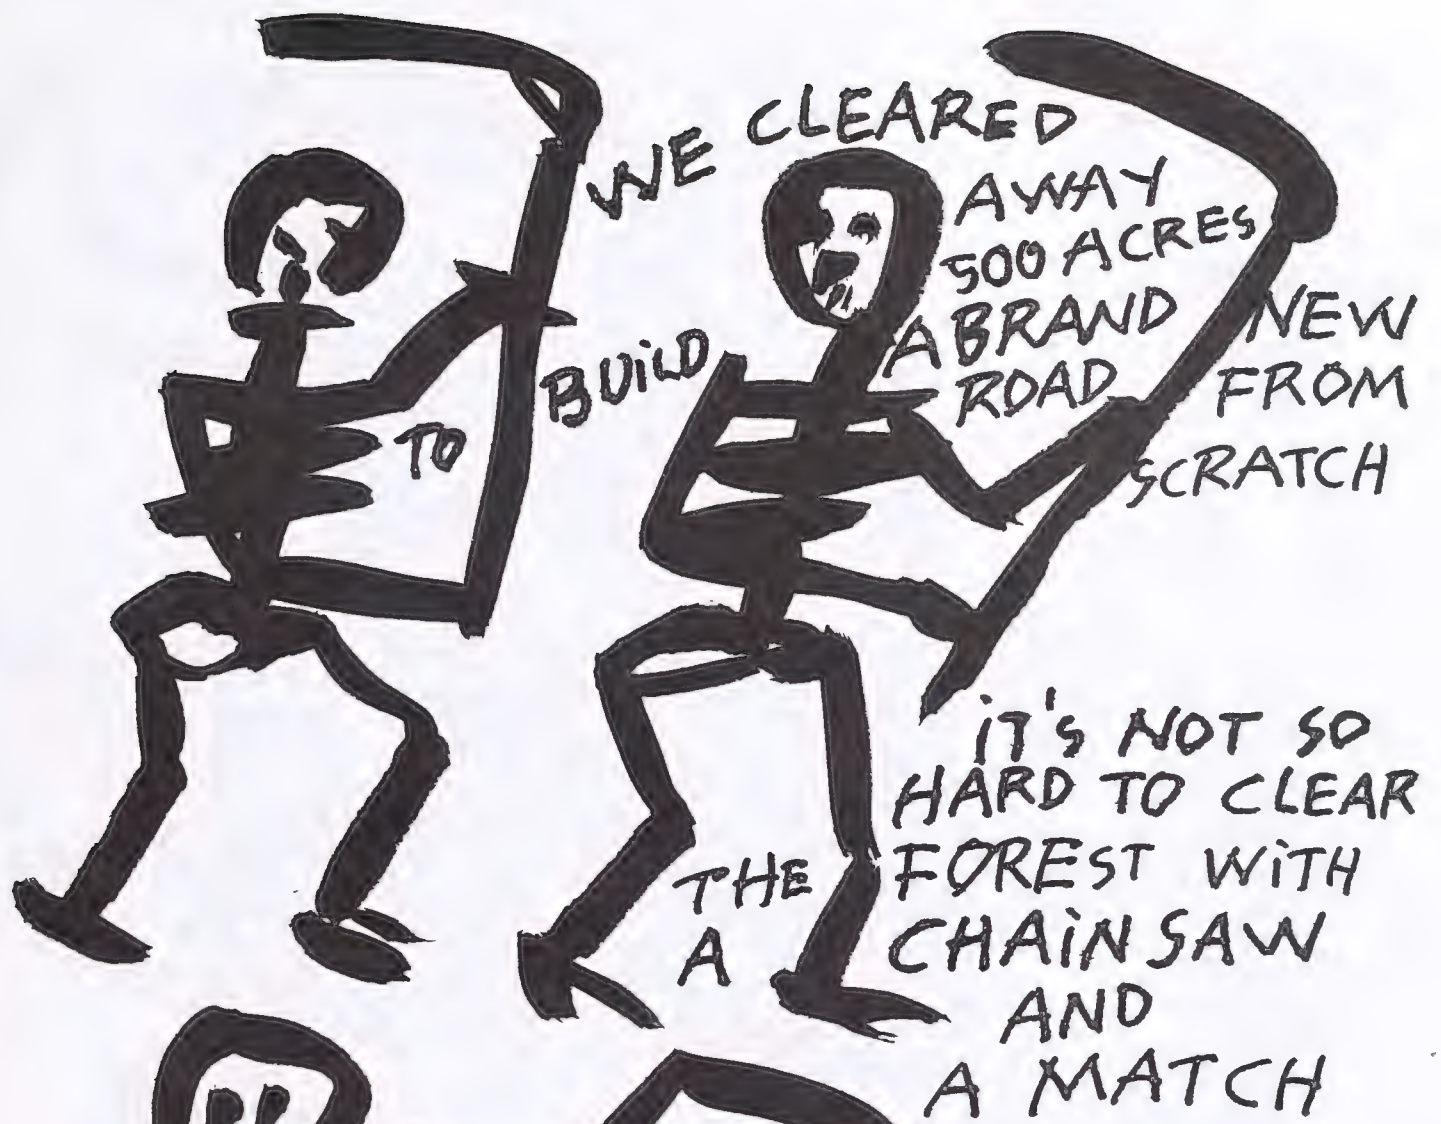 WE CLEARED
AWAY
500 ACRES
TO BUILD A BRAND NEW
ROAD FROM
SCRATCH
IT'S NOT SO
HARD TO CLEAR
THE FOREST WITH
A CHAINSAW
AND
A MATCH